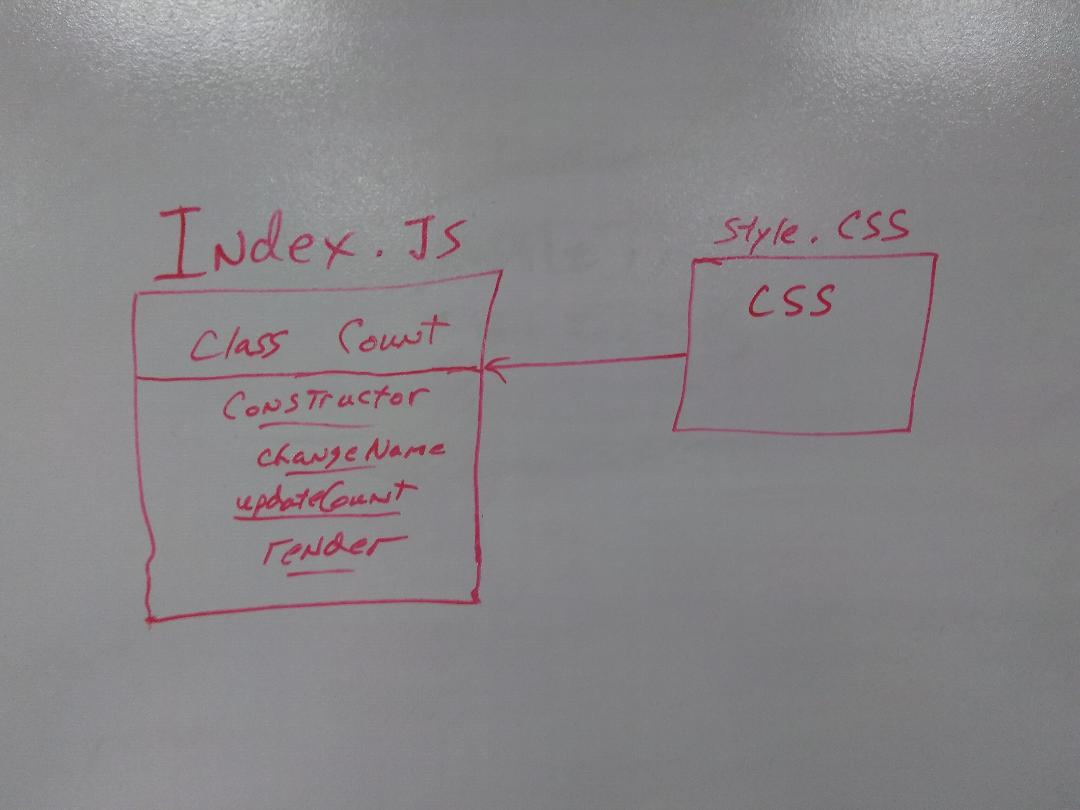 Index.Js
Class Count
Constructor
changeName
updateCount
render
style.CSS
CSS